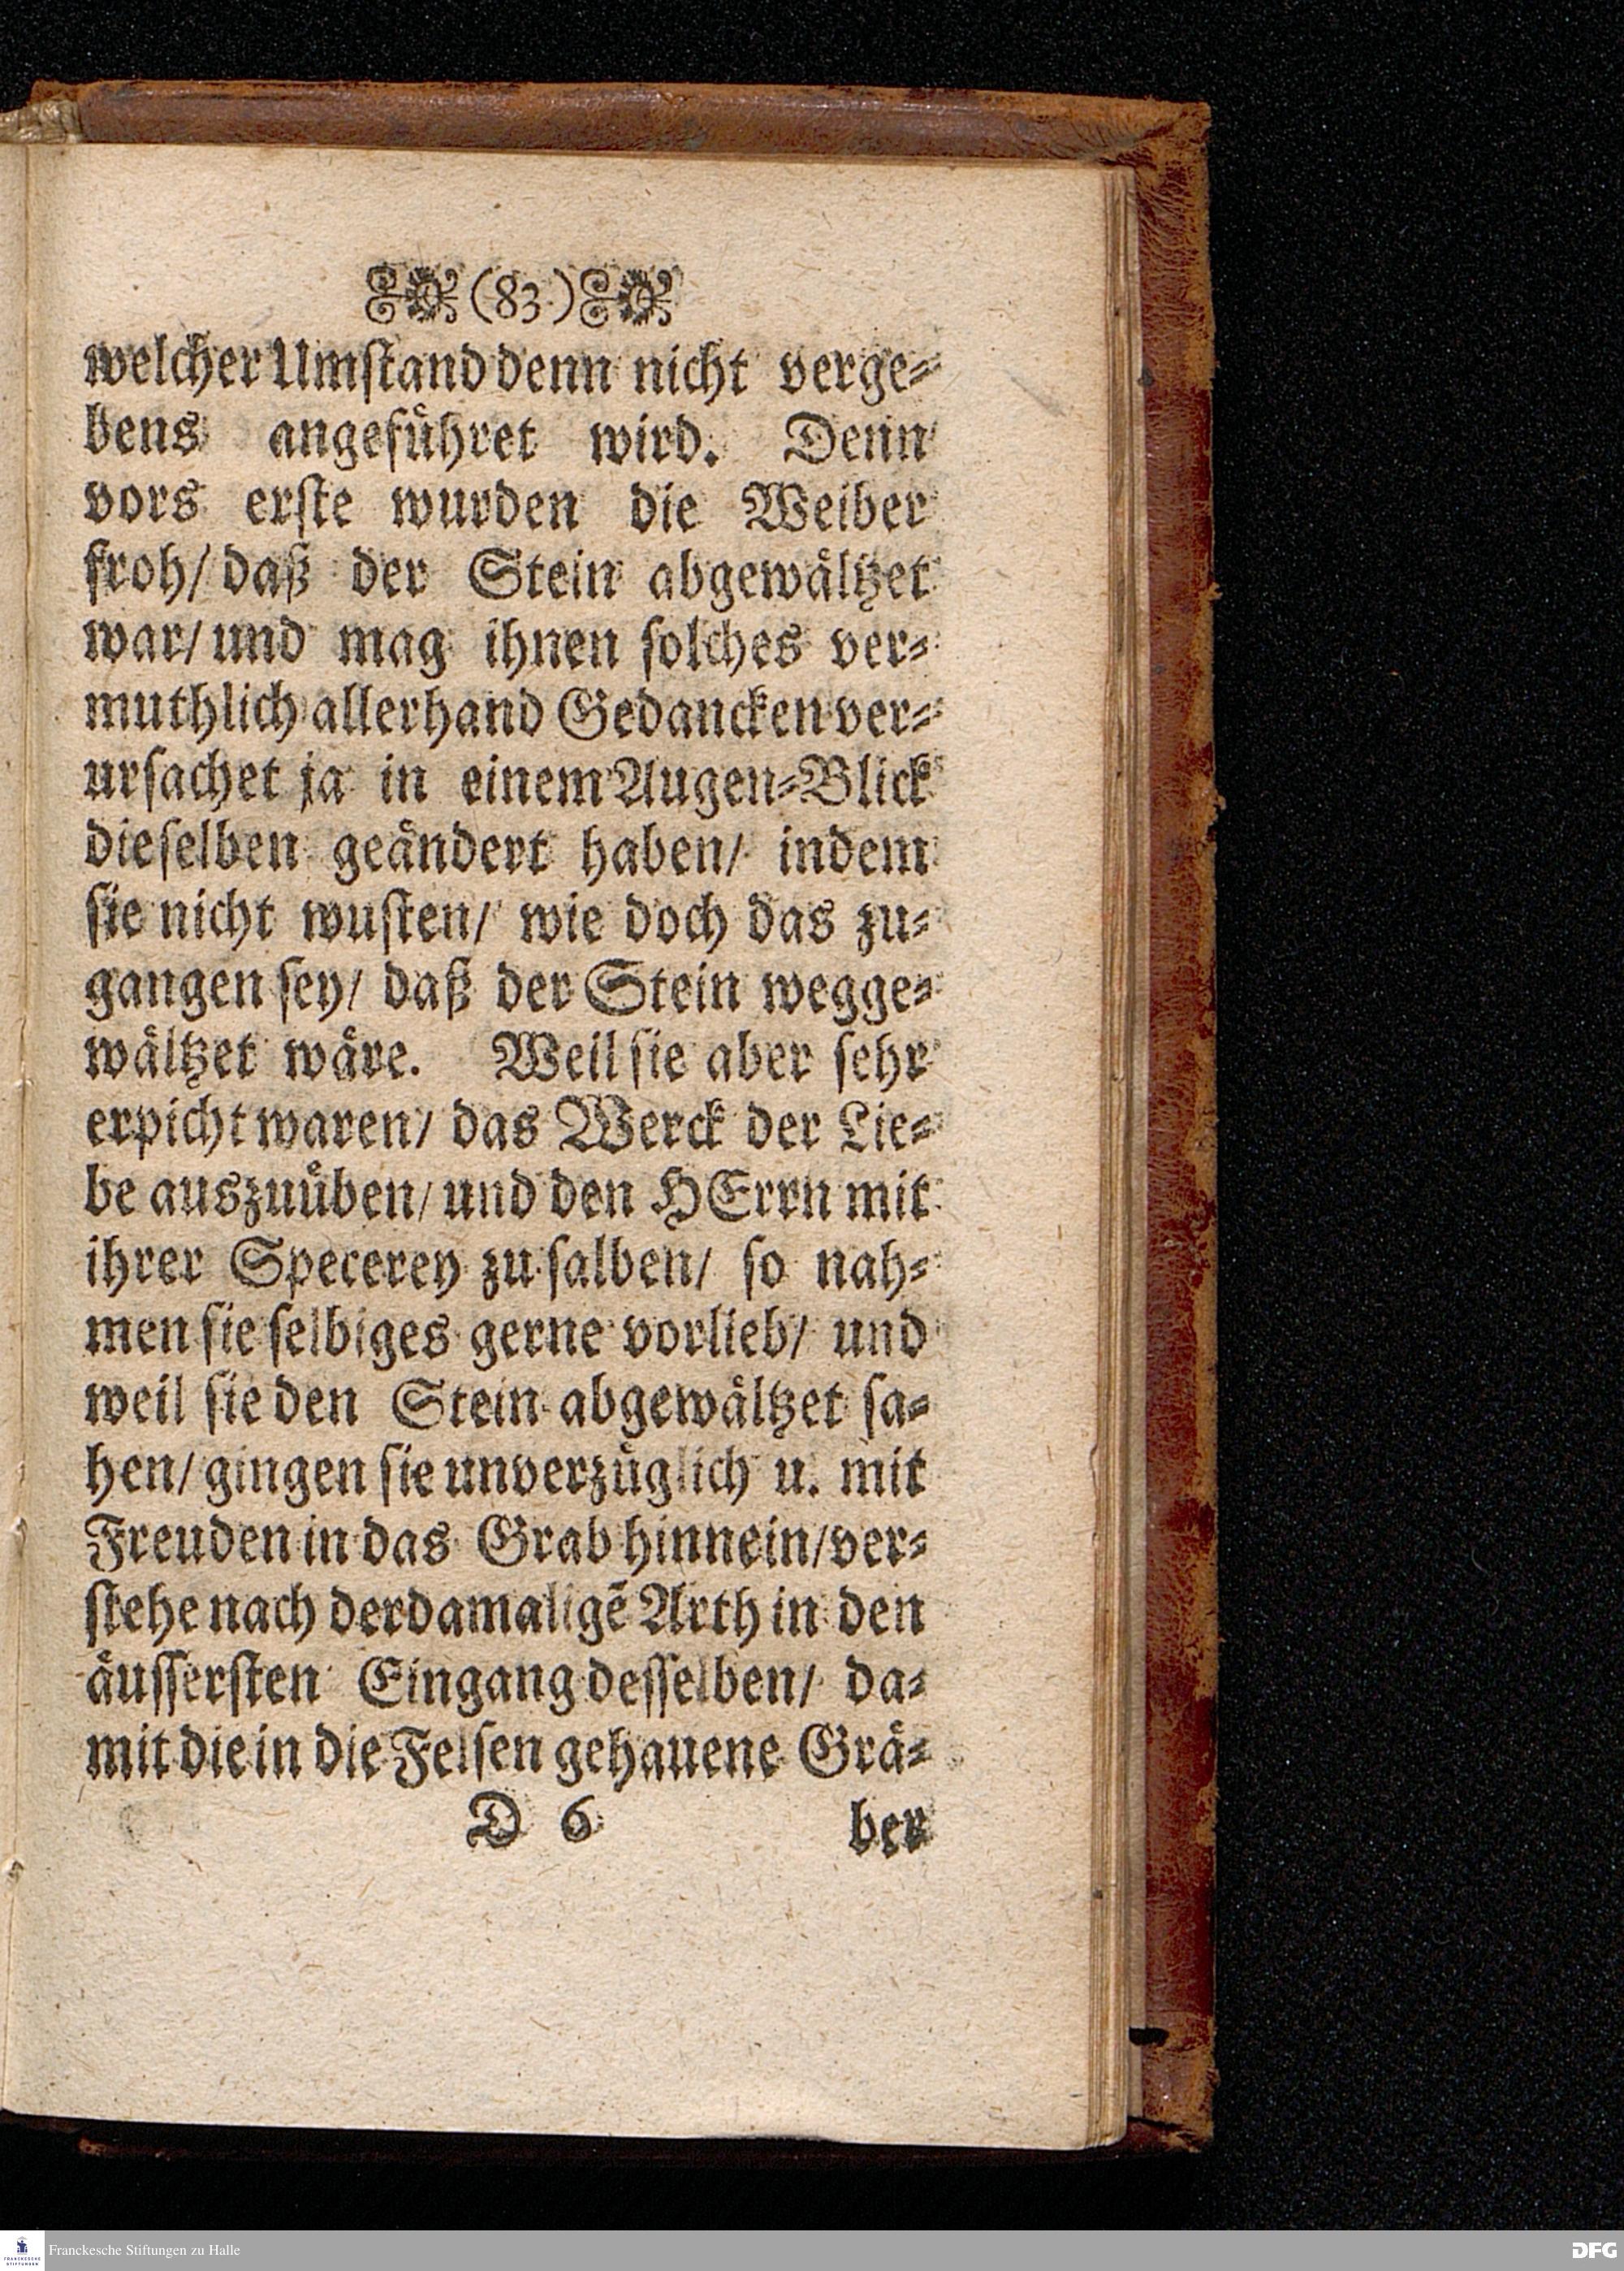 (83)
welcher Umſtand denn nicht verge⸗
bens angefuͤhret wird. Denn
vors erſte wurden die Weiber
froh/ daß der Stein abgewaͤltzet
war/ und mag ihnen ſolches ver⸗
muthlich allerhand Gedancken ver⸗
urſachet ja in einem Augen⸗Blick
dieſelben geaͤndert haben/ indem
ſie nicht wuſten/ wie doch das zu⸗
gangen ſey/ daß der Stein wegge⸗
waͤltzet waͤre. Weil ſie aber ſehr
erpicht waren/ das Werck der Lie⸗
be auszuuͤben/ und den HErrn mit
ihrer Specerey zu ſalben/ ſo nah⸗
men ſie ſelbiges gerne vorlieb/ und
weil ſie den Stein abgewaͤltzet ſa⸗
hen/ gingen ſie unverzuͤglich u. mit
Freuden in das Grab hinnein/ ver⸗
ſtehe nach der damaligẽ Arth in den
aͤuſſerſten Eingang deſſelben/ da⸗
mit die in die Felſen gehauene Graͤ⸗
D 6 ber
FRANCKESCHE STIFTUNGEN Franckesche Stiftungen zu Halle DFG